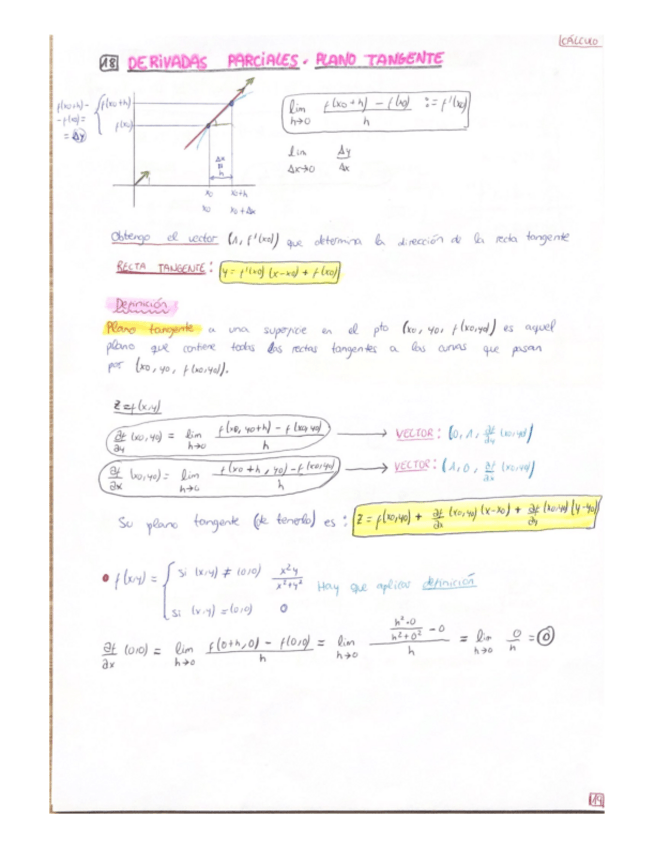 CÁLCULO
18 DERIVADAS PARCIALES. PLANO TANGENTE
f(x0+h)-
-f(x0)=
=Δy
f(x0+h)
f(x0)
Δx
h
x0 x0+h
x0 x0+Δx
lim h→0 f(x0+h) - f(x0) / h := f'(x0)
lim Δx→0 Δy / Δx
Obtengo el vector (1, f'(x0)) que determina la dirección de la recta tangente
RECTA TANGENTE: y = f'(x0) (x-x0) + f(x0)
Definición:
Plano tangente a una superficie en el pto (x0, y0, f(x0,y0)) es aquel
plano que contiene todas las rectas tangentes a las curvas que pasan
por (x0, y0, f(x0,y0)).
Z=f(x,y)
∂f/∂y (x0,y0) = lim h→0 f(x0, y0+h) - f(x0,y0) / h → VECTOR: (0, 1, ∂f/∂y (x0,y0))
∂f/∂x (x0,y0) = lim h→0 f(x0+h, y0) - f(x0,y0) / h → VECTOR: (1, 0, ∂f/∂x (x0,y0))
Su plano tangente (de tenerlo) es: Z = f(x0,y0) + ∂f/∂x (x0,y0) (x-x0) + ∂f/∂y (x0,y0) (y-y0)
f(x,y) = { si (x,y) ≠ (0,0) x²y / x²+y² Hay que aplicar definición
si (x,y) = (0,0) 0
∂f/∂x (0,0) = lim h→0 f(0+h,0) - f(0,0) / h = lim h→0 h²·0 / h²+0² - 0 / h = lim h→0 0/h = 0
19